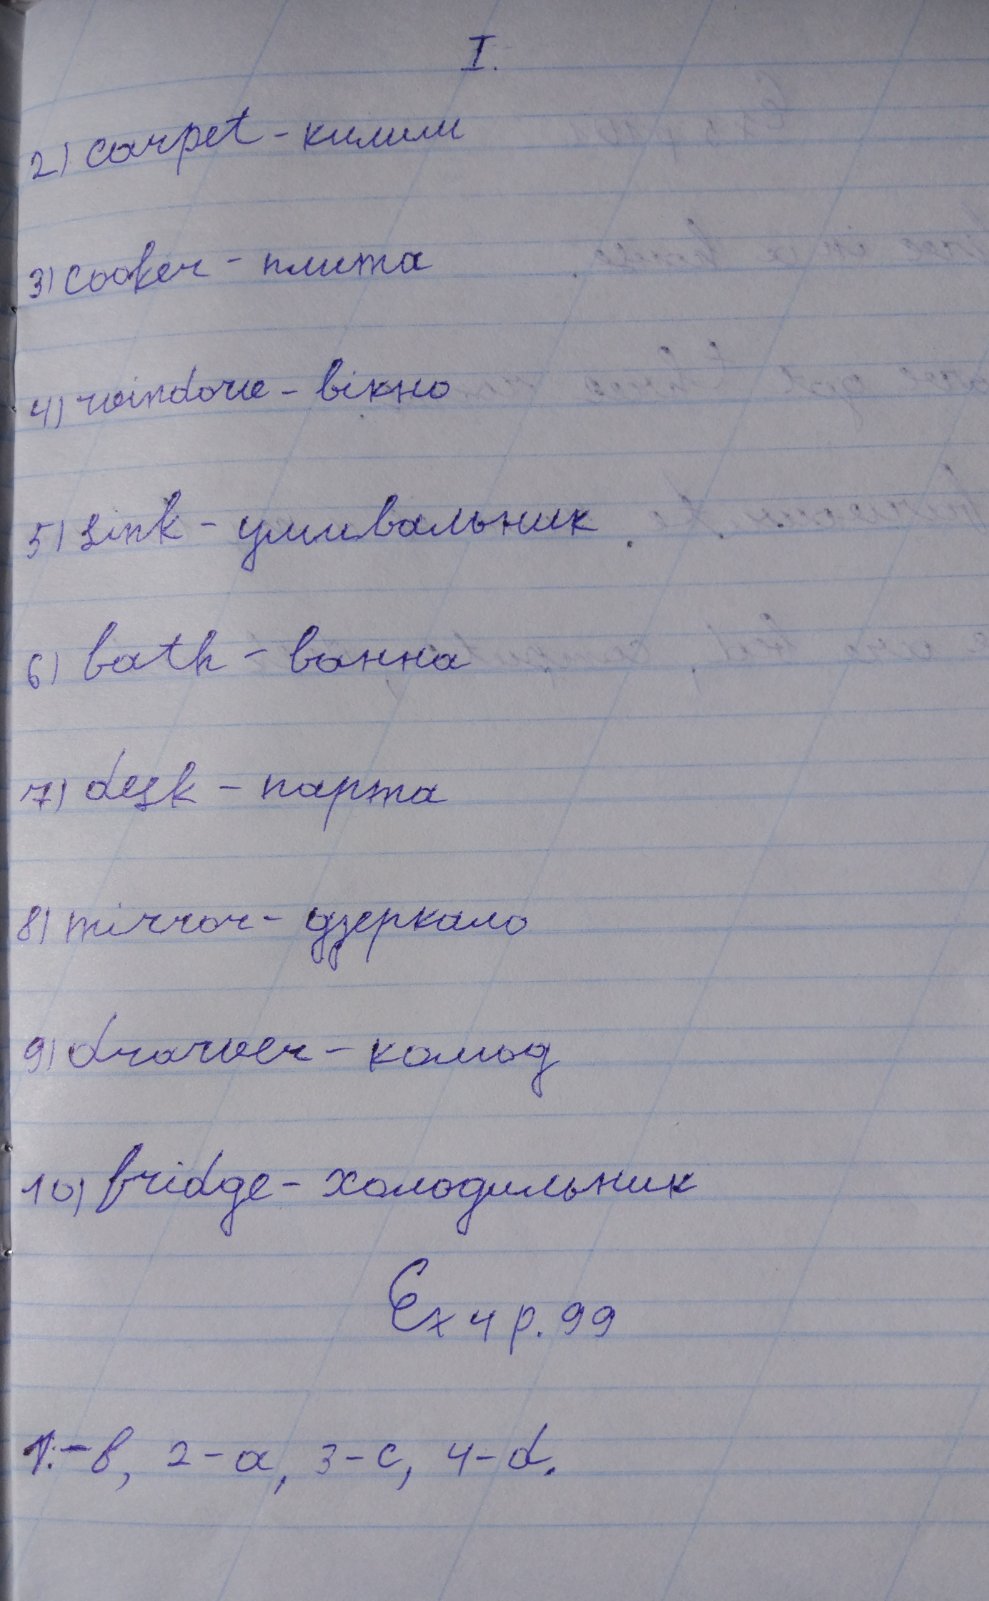 I.
2) carpet - килим
3) cooker - плита
4) window - вікно
5) sink - умивальник
6) bath - ванна
7) desk - парта
8) mirror - дзеркало
9) drawer - комод
10) fridge - холодильник
Ex 4 p. 99
1. - b, 2 - a, 3 - c, 4 - d.